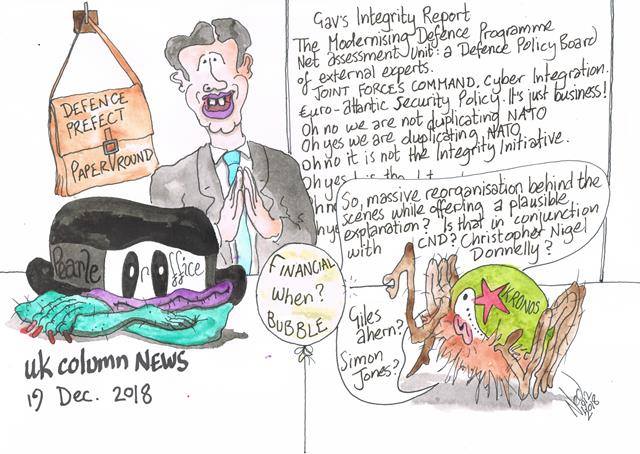 Gav's Integrity Report
The Modernising Defence Programme
Net assessment Unit: a Defence Policy Board
of external experts.
JOINT FORCES COMMAND, Cyber Integration.
Euro-atlantic Security Policy. It's just business!
Oh no we are not duplicating NATO
Oh yes we are duplicating NATO
Oh no it is not the Integrity Initiative.
Oh yes
DEFENCE
PREFECT
PAPER ROUND
So, massive reorganisation behind the
scenes while offering a plausible
explanation? Is that in conjunction
with CND? Christopher Nigel
Donnelly?
KRONOS
Giles
ahern?
Simon
Jones?
FINANCIAL
when?
BUBBLE
uk column NEWS
19 Dec. 2018
2018